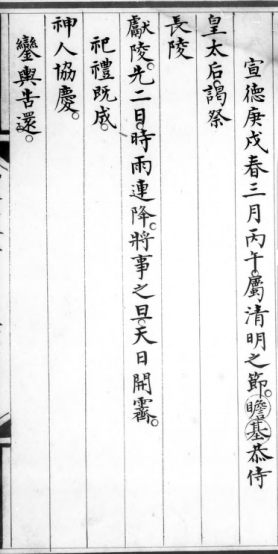 宣德庚戌春三月丙午。屬清明之節。瞻基恭侍
皇太后謁祭
長陵
獻陵。先二日。時雨連降。將事之旦。天日開霽。
祀禮既成。
神人協慶。
鑾輿告還。